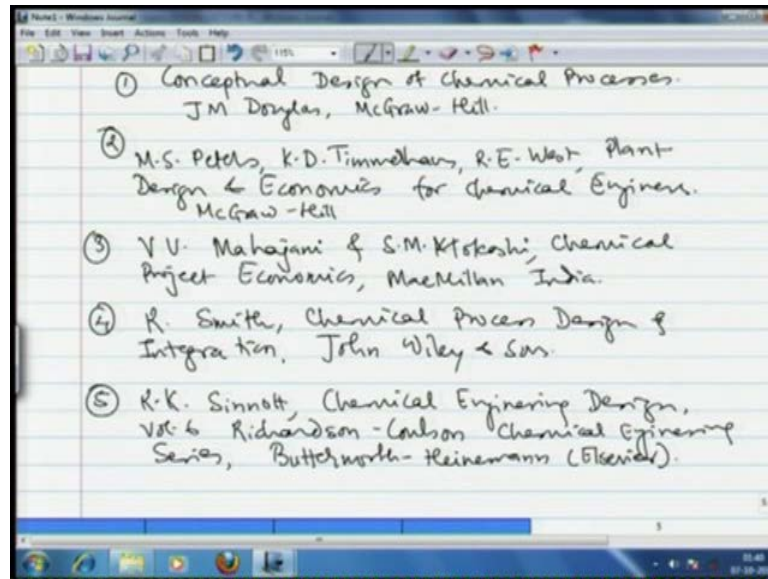 Note1 - Windows Journal
File Edit View Insert Actions Tools Help
115%
① Conceptual Design of Chemical Processes.
JM Douglas, McGraw-Hill.
② M.S. Peters, K.D. Timmerhaus, R.E. West, Plant
Design & Economics for Chemical Engineers.
McGraw-Hill
③ V.V. Mahajani & S.M. Mokashi, Chemical
Project Economics, MacMillan India.
④ R. Smith, Chemical Process Design &
Integration, John Wiley & Sons.
⑤ R.K. Sinnott, Chemical Enginering Design,
Vol. 6 Richardson-Coulson Chemical Eginering
Series, Butterworth-Heinemann (Elsevier).
5
5
01:40